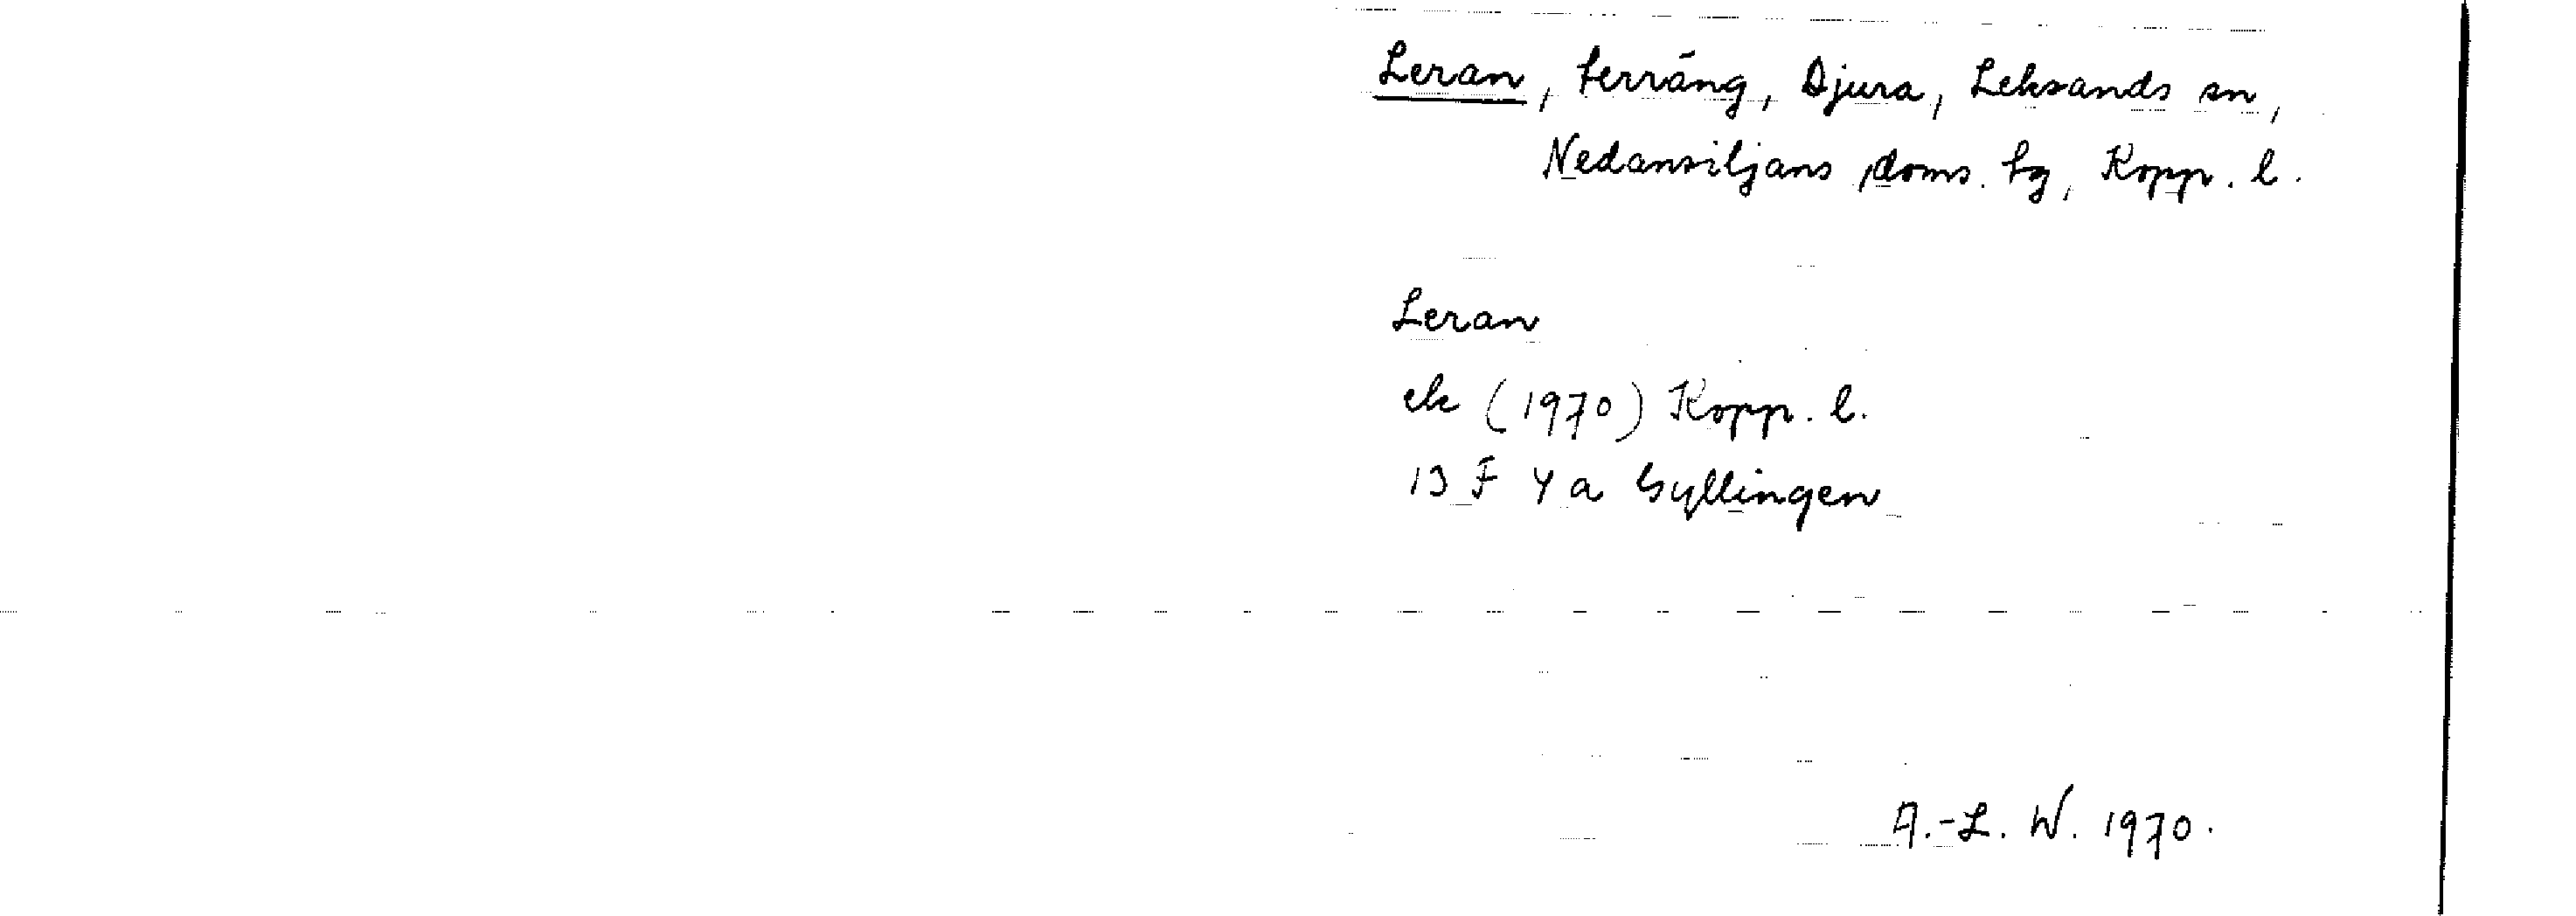 Leran, terräng, Djura, Leksands sn,
Nedansiljans doms. tg, Kopp. l.
Leran
ek (1970) Kopp. l.
13 F 4 a Gyllingen
A.-L. W. 1970.